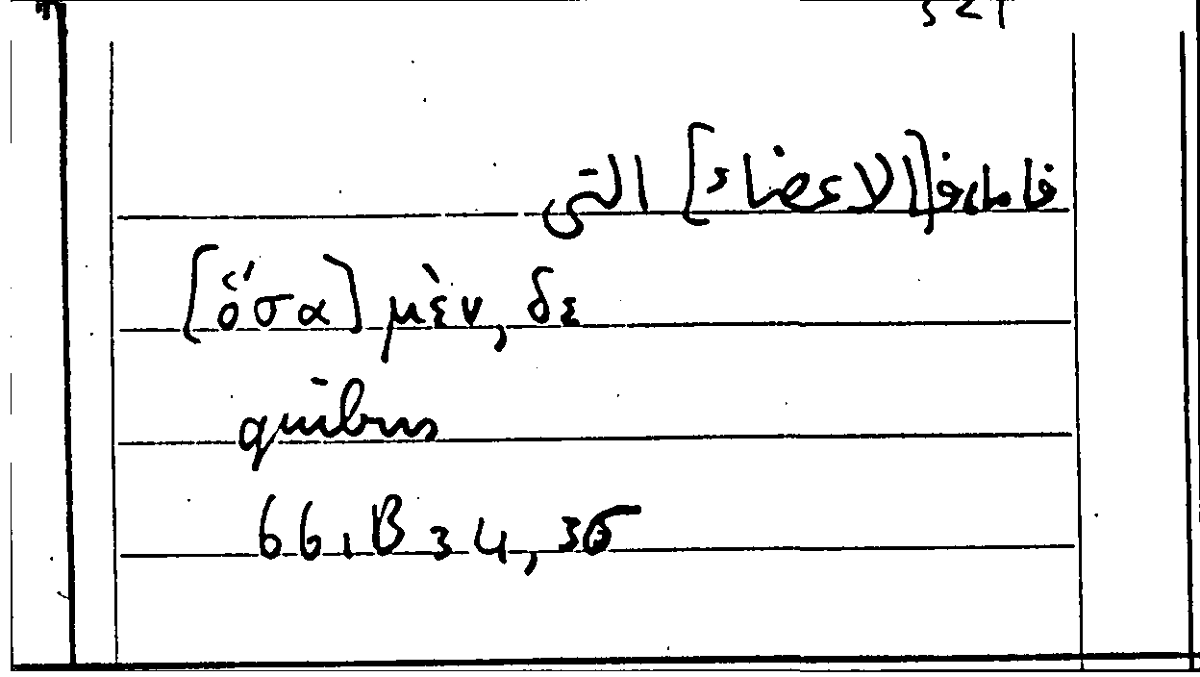 فاما، و[الاعضاء] التى
[ὅσα] μὲν, δε
quibus
661B34, 35